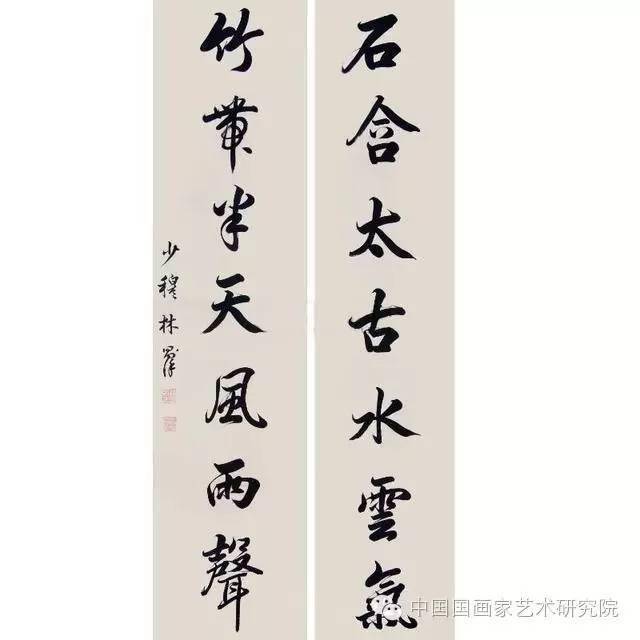 石含太古水雲氣
竹帶半天風雨聲
少穆林則徐
中国国画家艺术研究院